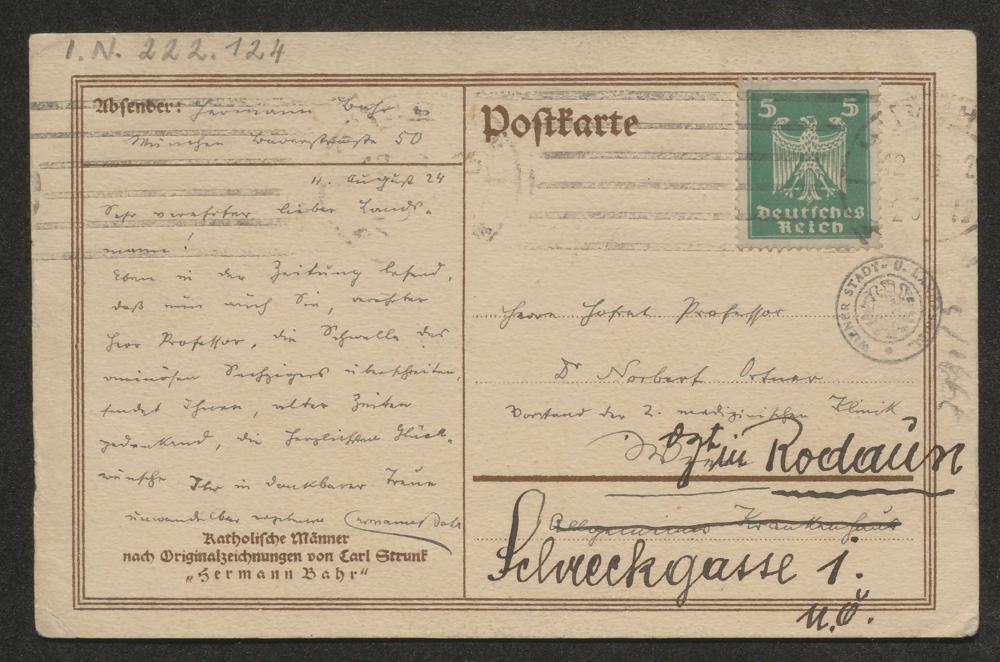 I.N. 222.124
Absender: Hermann Bahr
München Barerstraße 50
11. August 24
Sehr verehrter lieber Lands-
mann!
Eben in der Zeitung lesend,
daß nun auch Sie, verehrter
Herr Professor, die Schwelle des
ominösen Sechzigers überschreiten,
sendet Ihnen, alter Zeiten
gedenkend, die herzlichsten Glück-
wünsche Ihr in dankbarer Treue
unwandelbar ergebener Hermann Bahr
Katholische Männer
nach Originalzeichnungen von Carl Strunk
„Hermann Bahr“
Postkarte
5 5
Deutsches
Reich
WIENER STADT- U.
Herrn Hofrat Professor
Dr Norbert Ortner
Vorstand der 2. medizinischen Klinik
Wien
dzt in Rodaun
Allgemeines Krankenhaus
Schreckgasse 1.
N.Ö.